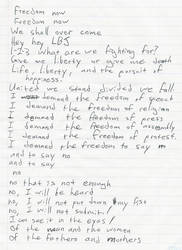 Freedom now
Freedom now
We shall over come
Hey hey, LBJ
1-2-3 What are we fighting for?
Give me liberty or give me death
Life, liberty, and the pursuit of
happiness.
United we stand divided we fall
I demand the freedom of speech
I demand the freedom of religion
I demand the freedom of press
I demand the freedom of assembly
I demand the freedom of protest.
I demand the freedom to say no
and to say no
and to say
no
no that is not enough
no, I will be heard
no, I will not put down my fist
no, I will not submit!
I can see it in the eyes!
Of the men and the women
Of the fathers and mothers